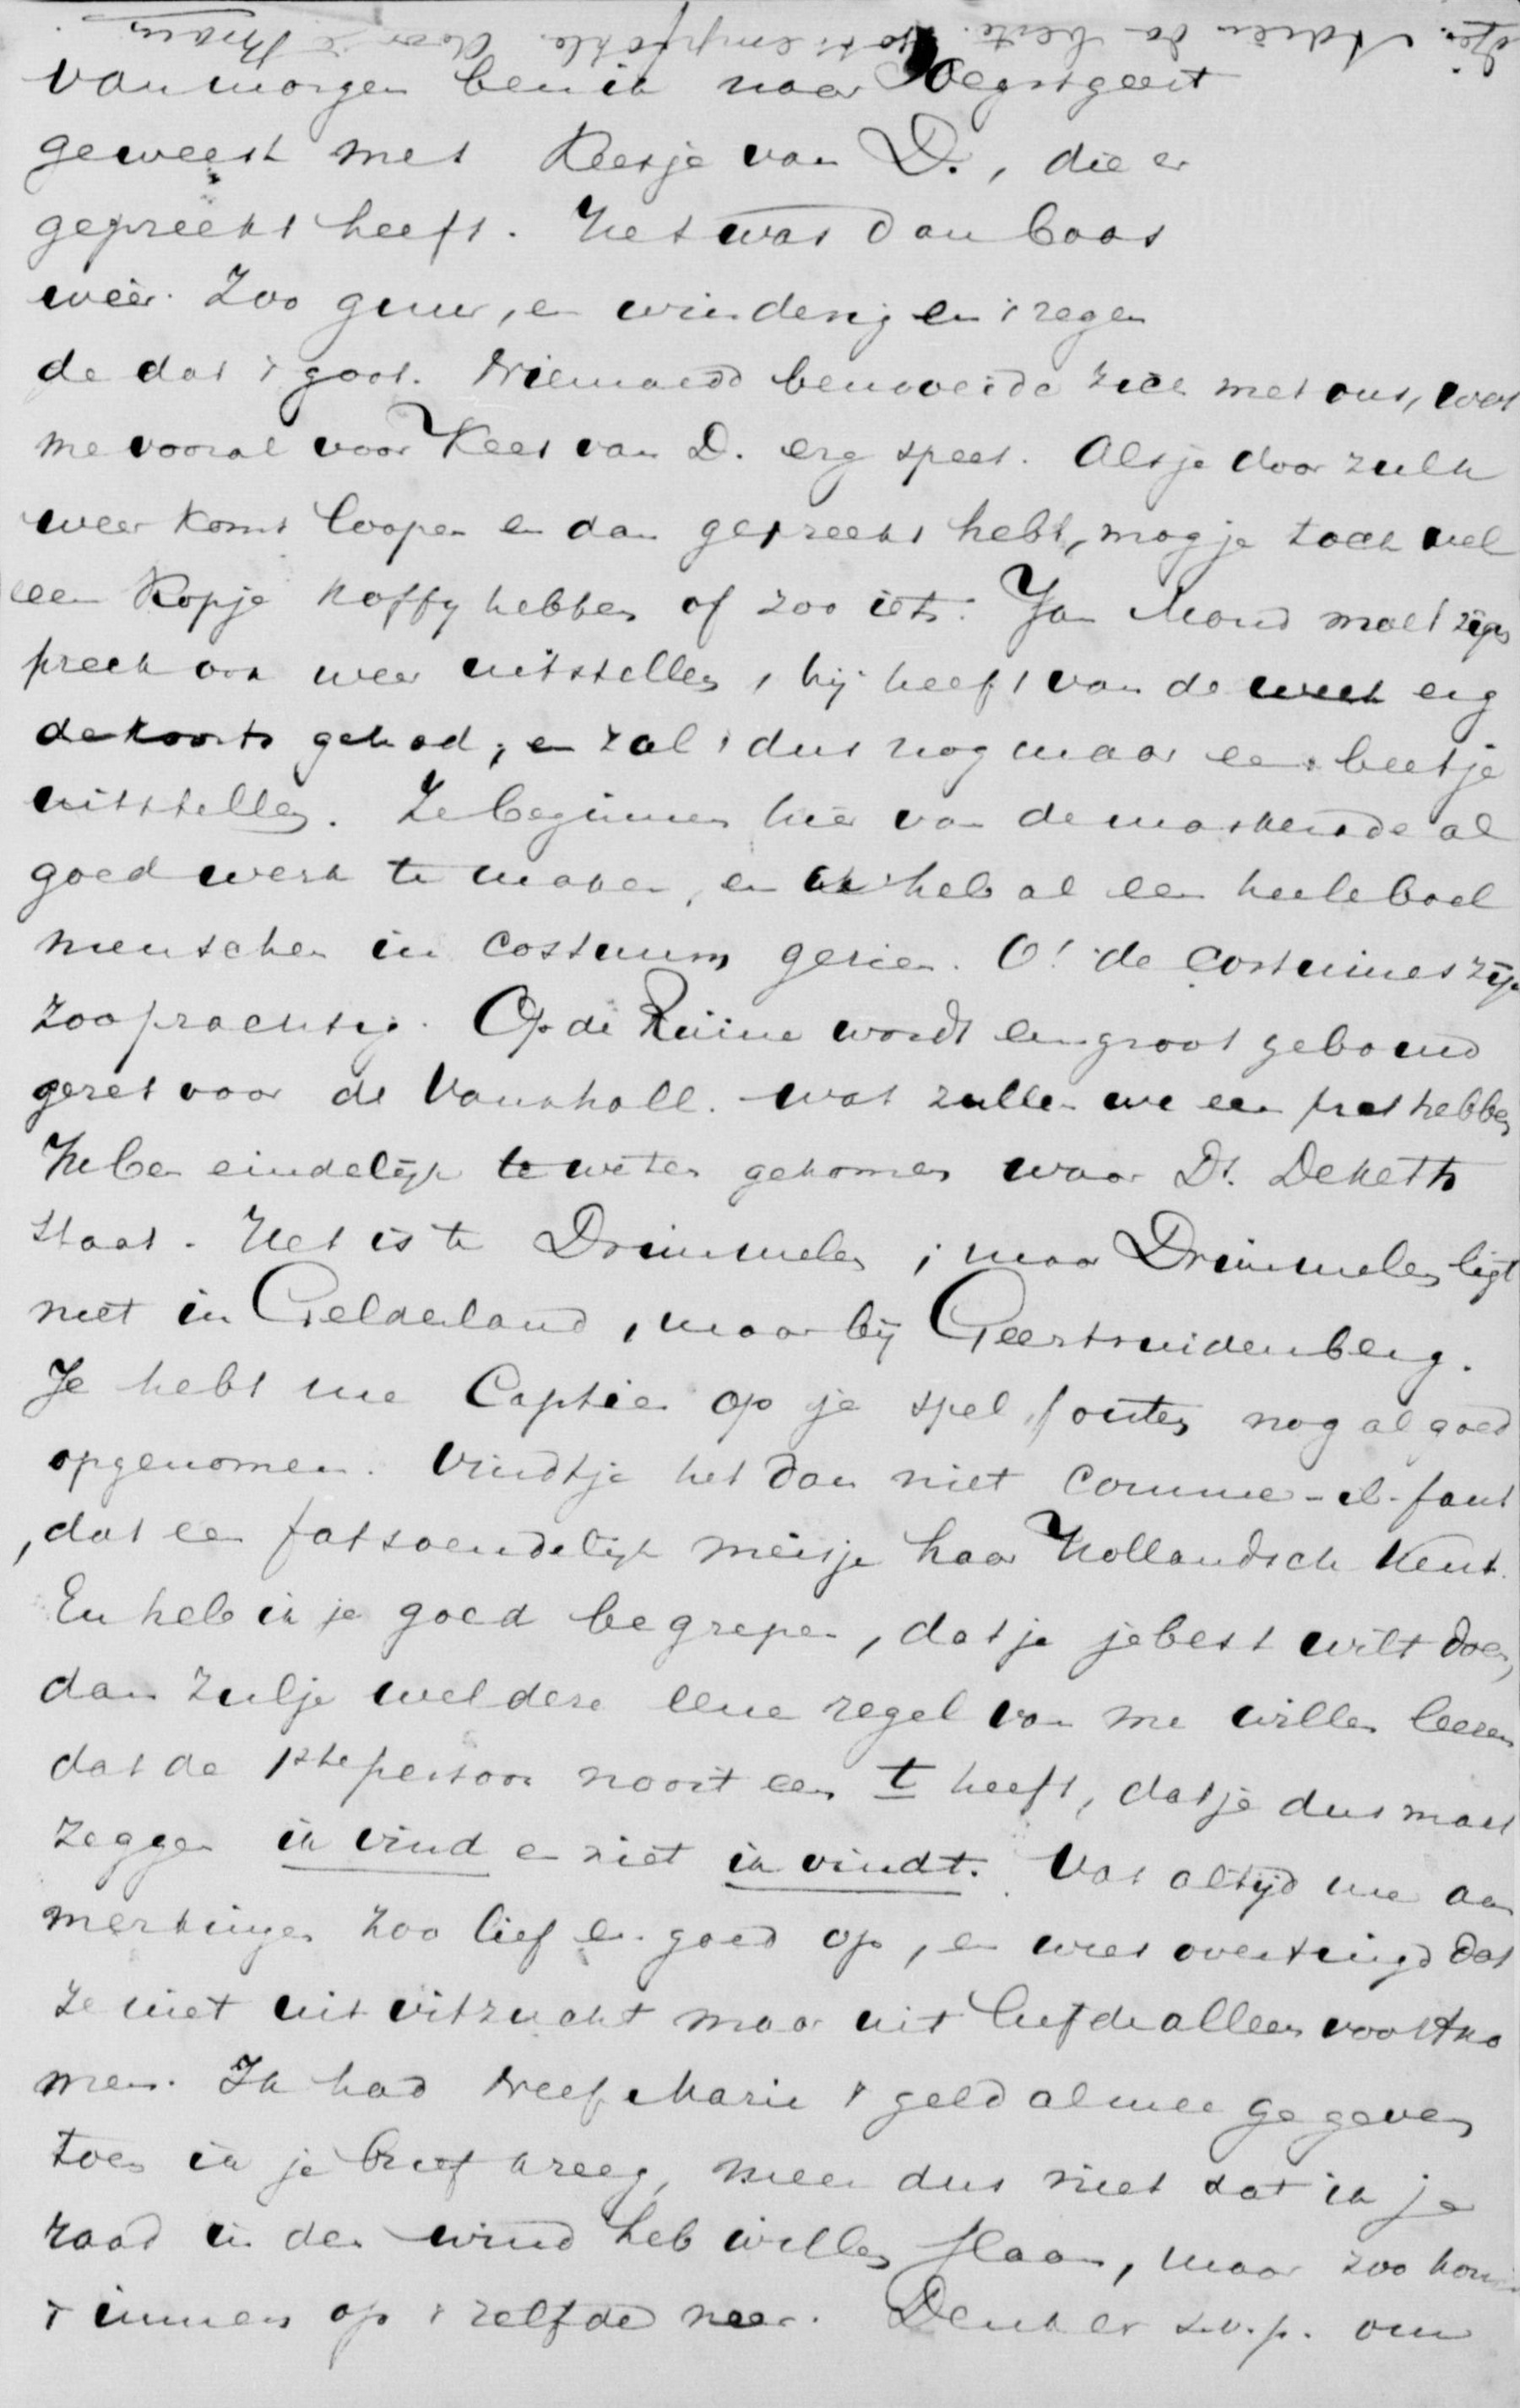 Adieu
van morgen ben ik naar Oegstgeest
geweest met Keesje van D., die er
gepreekt heeft. Het was dan baas
weêr. Zoo guur, en winderig en 't regen
de dat 't goot. Niemand bemoeide zich met ons, wat
me vooral voor Kees van D. erg speet. Als je door zulk
weer komt loopen en dan gepreekt hebt, mag je toch wel
een kopje koffy hebben of zoo iets. Jan Mond moet zijn
preek ook weer uitstellen, hij heeft van de week erg
de koorts gehad, en zal 't dus nog maar een beetje
uitstellen. Ze beginnen hier van de maskerade al
goed werk te maken, en ik heb al een heeleboel
menschen in costuum gezien. O! de costuimes zijn
zoo prachtig. Op de Ruïne wordt een groot gebouw
gezet voor de Vauxhall. wat zullen we een pret hebben
Ik ben eindelijk te weten gekomen waar Ds. Deketh
staat. Het is te Drimmelen; maar Drimmelen ligt
niet in Gelderland, maar bij Geertruidenberg.
Je hebt me Captie op je spel fouten nog al goed
opgenomen. Vindt je het dan niet comme-il-faut
, dat een fatsoendelijk meisje haar Hollandsch kent.
En heb ik je goed begrepen, dat je je best wilt doen,
dan zul je wel deze eene regel van me willen leeren
dat de 1ste persoon nooit een t heeft, dat je dus moet
zeggen ik vind en niet ik vindt. Vat altijd me aan
merkingen zoo lief en goed op, en wees overtuigd dat
ze niet uit vitzucht maar uit liefde alleen voortko
men. Ik had Neef Marie 't geld al mee gegeven
toen ik je brief kreeg, meen dus niet dat ik je
raad in den wind heb willen slaan, maar zoo komt
't immers op 't zelfde neer. Denk er s.v.p. om